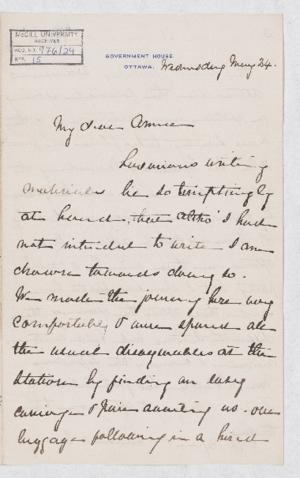 McGILL UNIVERSITY
ARCHIVES
ACC. NO. 976/29
REF. 15
GOVERNMENT HOUSE
OTTAWA.
Wednesday May 24.
My dear Annie
Luxurious writing
materials lie so temptingly
at hand, that altho' I had
not intended to write I am
drawn towards doing so.
We made the journey here very
comfortably & were spared all
the usual disagreeables at the
station by finding an easy
carriage & pair awaiting us. our
luggage following in a hired